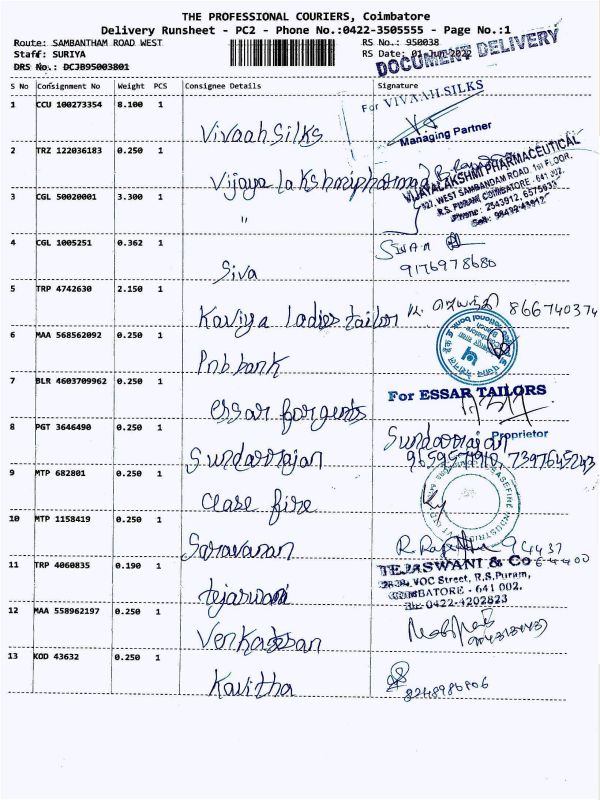 THE PROFESSIONAL COURIERS, Coimbatore
Delivery Runsheet - PC2 - Phone No.:0422-3505555 - Page No.:1
Route: SAMBANTHAM ROAD WEST
RS No.: 950038
Staff: SURIYA
RS Date: 01-Jun-2022
DRS No.: DCJB95003801
DOCUMENT DELIVERY
S No Consignment No Weight PCS Consignee Details Signature
1 CCU 100273354 8.100 1 Vivaah Silks
For VIVAAH SILKS
Managing Partner
2 TRZ 122036183 0.250 1 Vijaya lakshmi pharma
VIJAYALAKSHMI PHARMACEUTICAL
WEST SAMBANDAM ROAD, 1st FLOOR,
R.S. PURAM, COIMBATORE - 641 002.
Phone : 2543912, 6575935
3 CGL 50020001 3.300 1 "
4 CGL 1005251 0.362 1 Siva
9176978680
5 TRP 4742630 2.150 1 Kaviya ladies tailor
866740374
6 MAA 568562092 0.250 1 Pnb bank
7 BLR 4603709962 0.250 1 essar for gents
For ESSAR TAILORS
Proprietor
8 PGT 3646490 0.250 1 Sundarrajan
Sundarrajan
7397645243
9 MTP 682801 0.250 1 Clase fire
10 MTP 1158419 0.250 1 Saravanan
94437
11 TRP 4060835 0.190 1 tejaswani
TEJASWANI & Co
VOC Street, R.S.Puram,
COIMBATORE - 641 002.
Ph: 0422-4202823
12 MAA 558962197 0.250 1 Venkatesan
13 KOD 43632 0.250 1 Kavitha
8248986806